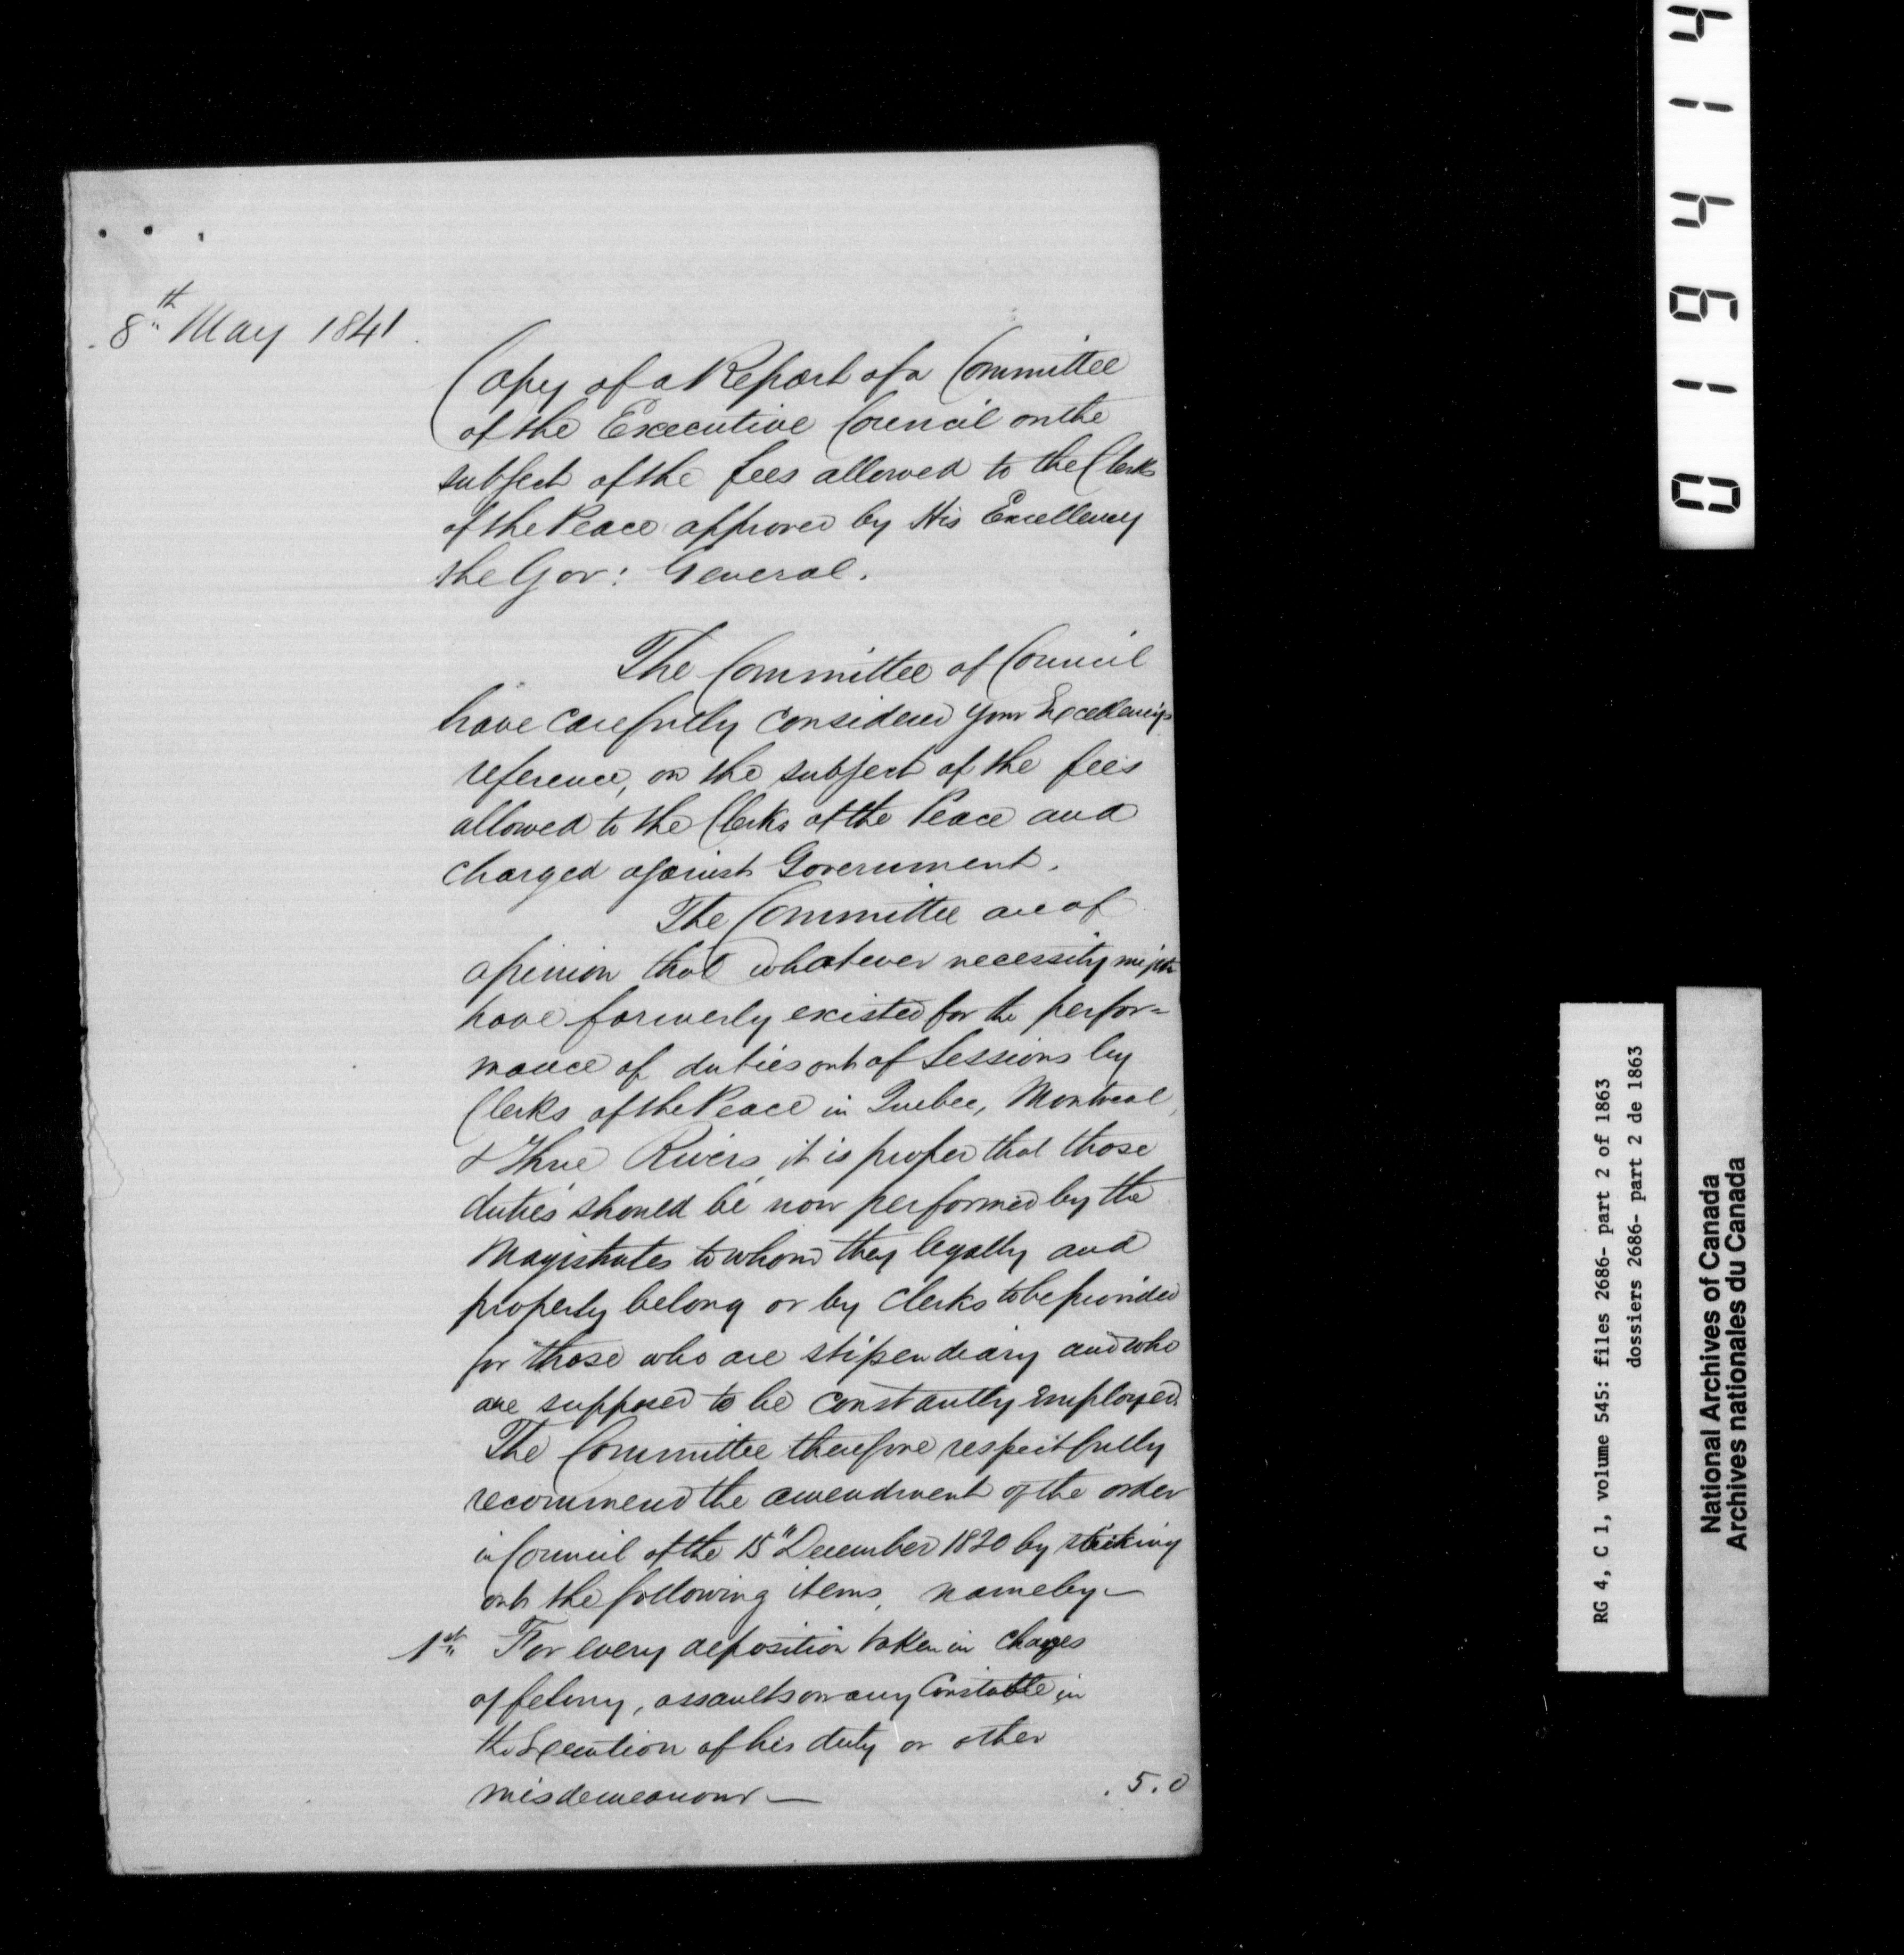 8th May 1841
Copy of a Report of a Committee
of the Executive Council on the
subject of the fees allowed to the Clerks
of the Peace approved by His Excellency
the Gov: General.
The Committee of Council
have carefully considered your Excellency's
reference, on the subject of the fees
allowed to the Clerks of the Peace and
charged against Government.
The Committee are of
opinion that whatever necessity might
have formerly existed for the perfor=
mance of duties out of Sessions by
Clerks of the Peace in Quebec, Montreal,
& Three Rivers, it is proper that those
duties should be now performed by the
Magistrates to whom they legally and
properly belong or by Clerks to be provided
for those who are stipendiary and who
are supposed to be constantly employed.
The Committee therefore respectfully
recommend the amendment of the order
in Council of the 15" December 1820 by striking
out the following items, namely—
1st For every deposition taken in charges
of felony, assaults on any Constable in
the Execution of his duty or other
misdemeanour — . 5. 0
4 1 4 6 1 0
RG 4, C 1, volume 545: files 2686- part 2 of 1863
dossiers 2686- part 2 de 1863
National Archives of Canada
Archives nationales du Canada